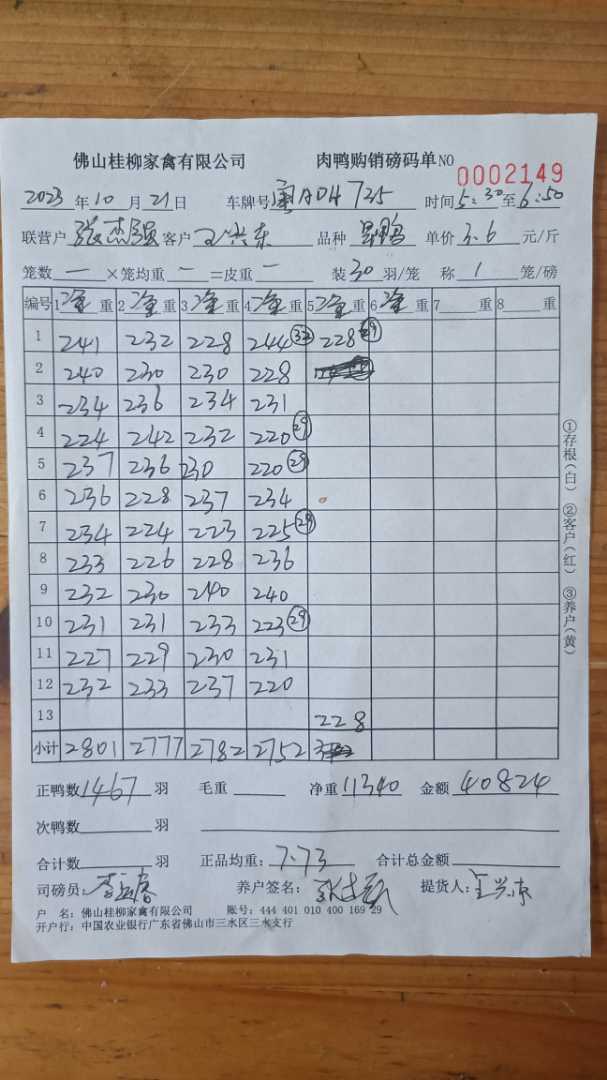 佛山桂柳家禽有限公司 肉鸭购销磅码单 NO 0002149
2023 年 10 月 21 日 车牌号 粤A04725 时间 5:30 至 6:50
联营户 张杰强 客户 王兴东 品种 单价 3.6 元/斤
笼数 一 ×笼均重 一 =皮重 一 装 30 羽/笼 称 1 笼/磅
编号 1 净 重 2 净 重 3 净 重 4 净 重 5 净 重 6 净 重 7 重 8 重
1 241 232 228 244 32 228 29
2 240 230 230 228
3 234 236 234 231
4 224 242 232 220 29
5 237 236 230 220 29
6 236 228 237 234
7 234 224 223 225 29
8 233 226 228 236
9 232 230 240 240
10 231 231 233 223 29
11 227 229 230 231
12 232 233 237 220
13 228
小计 2801 2777 2782 2752
正鸭数 1467 羽 毛重 净重 11340 金额 40824
次鸭数 羽
合计数 羽 正品均重: 7.73 合计总金额
司磅员: 养户签名: 提货人: 王兴东
户 名: 佛山桂柳家禽有限公司 账号: 444 401 010 400 169 29
开户行: 中国农业银行广东省佛山市三水区三水支行
①存根(白) ②客户(红) ③养户(黄)